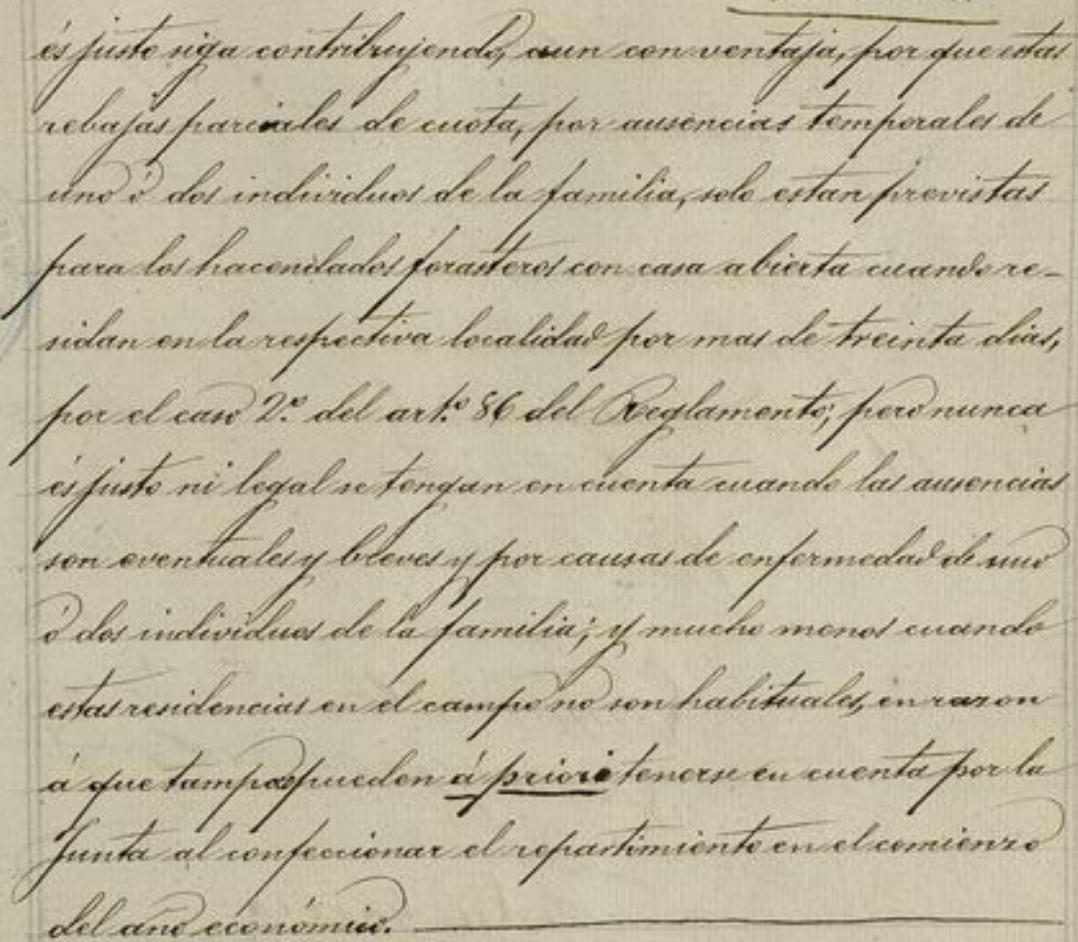 és justo siga contribuyendo, aun con ventaja, por que estas
rebajas parciales de cuota, por ausencias temporales de
uno ó dos individuos de la familia, solo estan previstas
para los hacendados forasteros con casa abierta cuando re-
sidan en la respectiva localidad por mas de treinta dias,
por el caso 2.º del art.º 86 del Reglamento; pero nunca
és justo ni legal se tengan en cuenta cuando las ausencias
son eventuales y breves y por causas de enfermedad de uno
ó dos individuos de la familia; y mucho menos cuando
estas residencias en el campo no son habituales, en razon
á que tampoco pueden á priori tenerse en cuenta por la
Junta al confeccionar el repartimiento en el comienzo
del año económico.